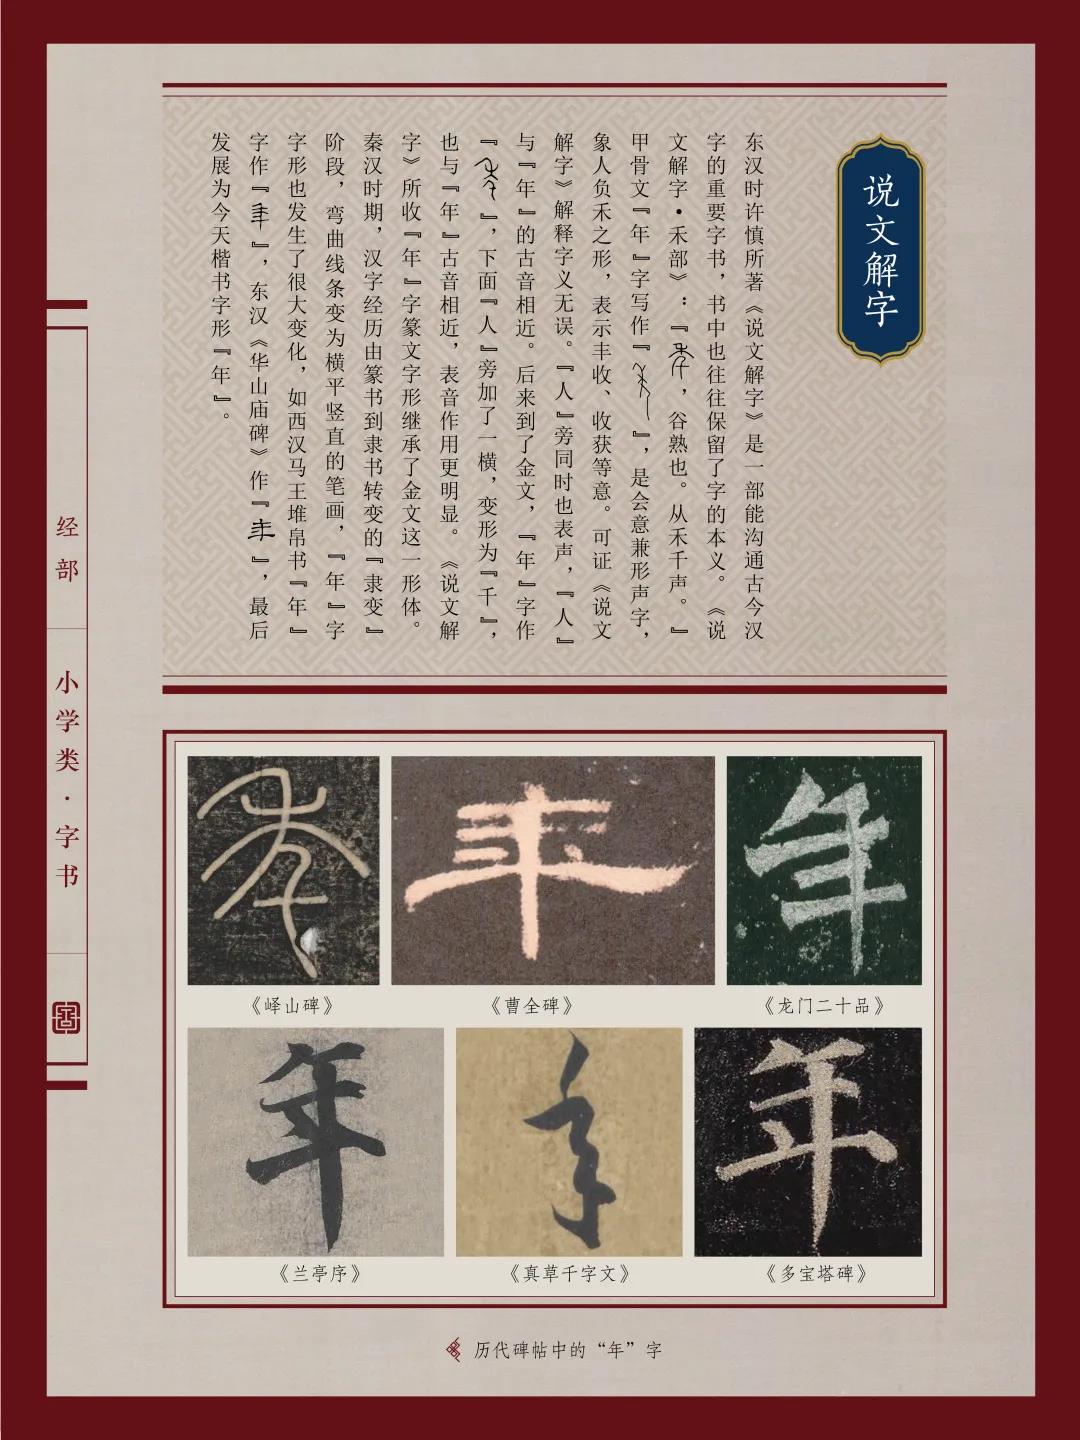 说文解字
东汉时许慎所著《说文解字》是一部能沟通古今汉
字的重要字书，书中也往往保留了字的本义。《说
文解字·禾部》：『秊，谷熟也。从禾千声。』
甲骨文『年』字写作『』，是会意兼形声字，
象人负禾之形，表示丰收、收获等意。可证《说文
解字》解释字义无误。『人』旁同时也表声，『人』
与『年』的古音相近。后来到了金文，『年』字作
『』，下面『人』旁加了一横，变形为『千』，
也与『年』古音相近，表音作用更明显。《说文解
字》所收『年』字篆文字形继承了金文这一形体。
秦汉时期，汉字经历由篆书到隶书转变的『隶变』
阶段，弯曲线条变为横平竖直的笔画，『年』字
字形也发生了很大变化，如西汉马王堆帛书『年』
字作『年』，东汉《华山庙碑》作『年』，最后
发展为今天楷书字形『年』。
经部
小学类·字书
年
年
年
《峄山碑》
《曹全碑》
《龙门二十品》
年
年
年
《兰亭序》
《真草千字文》
《多宝塔碑》
历代碑帖中的“年”字